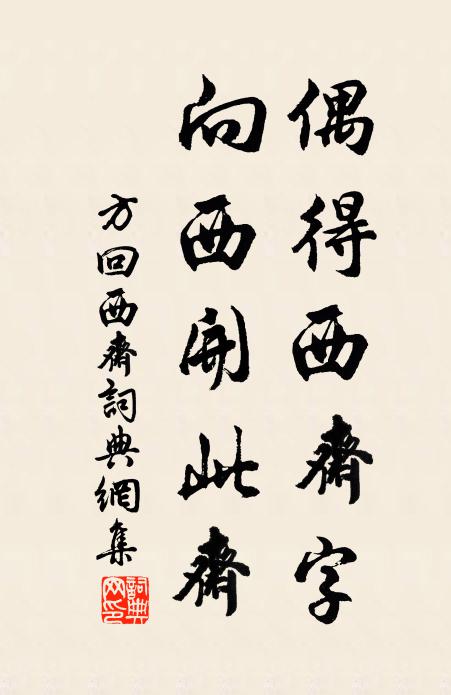 偶得西齋字
向西開此齋
方回西齋詞典網集
詞典網印